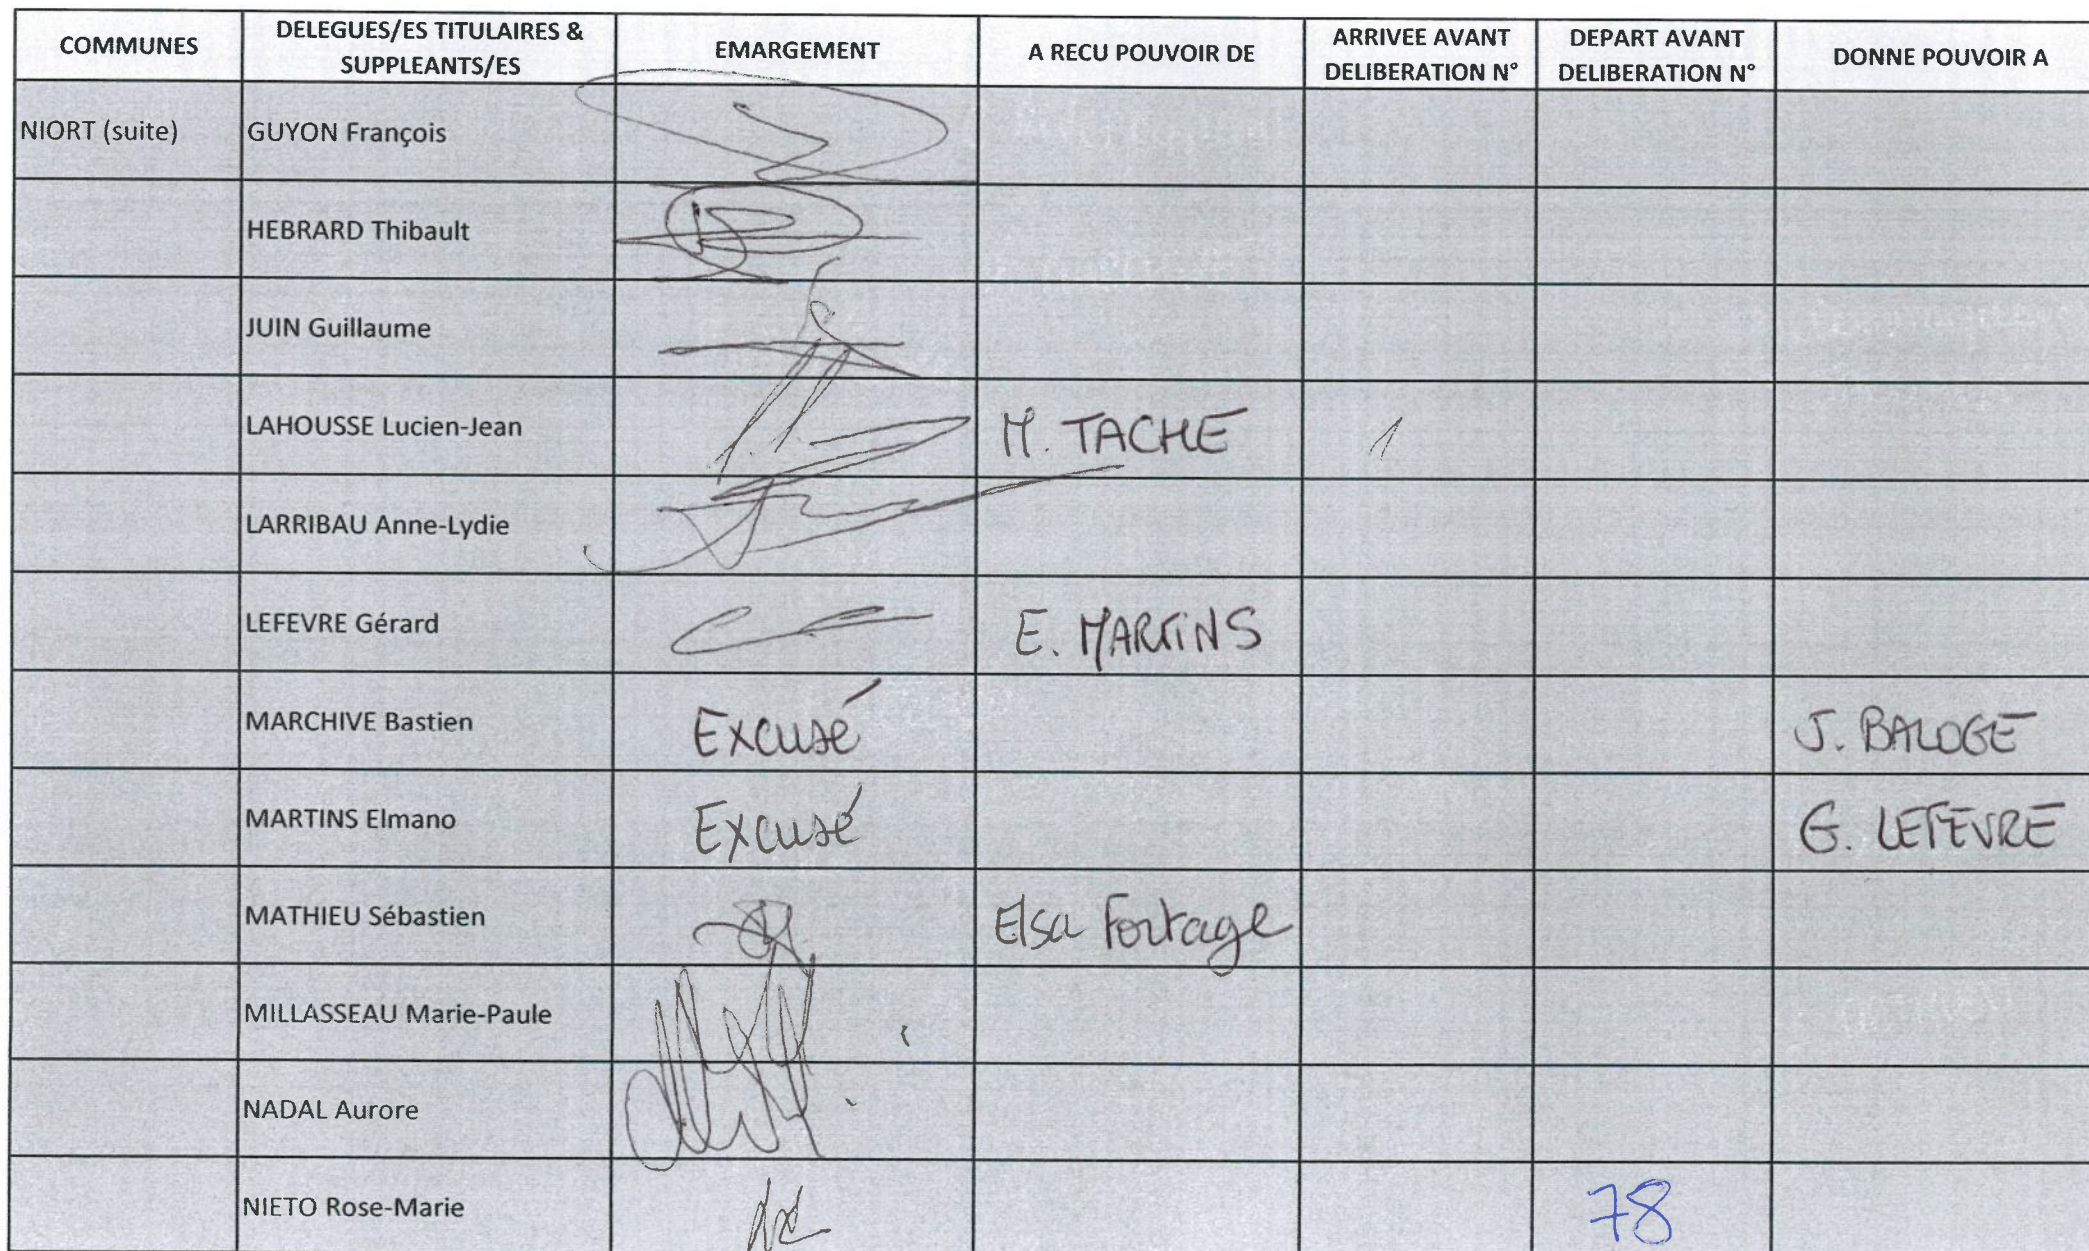 COMMUNES DELEGUES/ES TITULAIRES & SUPPLEANTS/ES EMARGEMENT A RECU POUVOIR DE ARRIVEE AVANT DELIBERATION N° DEPART AVANT DELIBERATION N° DONNE POUVOIR A
NIORT (suite) GUYON François
HEBRARD Thibault
JUIN Guillaume
LAHOUSSE Lucien-Jean M. TACHE 1
LARRIBAU Anne-Lydie
LEFEVRE Gérard E. MARTINS
MARCHIVE Bastien Excusé J. BALOGE
MARTINS Elmano Excusé G. LEFEVRE
MATHIEU Sébastien Elsa Fortage
MILLASSEAU Marie-Paule
NADAL Aurore
NIETO Rose-Marie 78